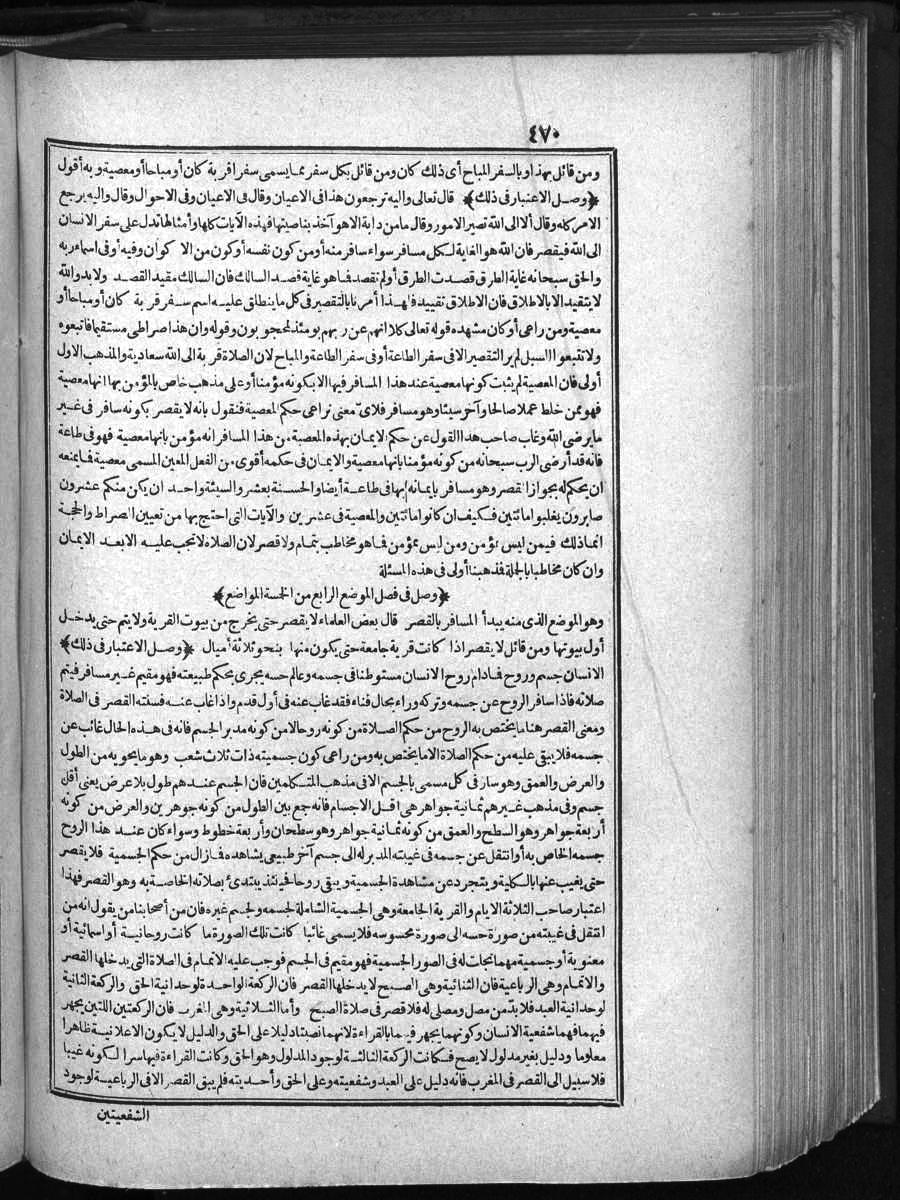 ٤٧٠
ومن قائل بهذا وبالسفر المباح أى ذلك كان ومن قائل بكل سفر مما يسمى سفرا قربة كان أو مباحا أو معصية وبه أقول
﴿وصل الاعتبار فى ذلك﴾ قال تعالى واليه ترجعون هذا فى الاعيان وقال فى الاعيان وفى الاحوال وقال واليه يرجع
الامر كله وقال ألا الى الله تصير الامور وقال ما من دابة الا هو آخذ بناصيتها فهذه الآيات كلها وأمثالها تدل على سفر الانسان
الى الله فيقصر فان الله هو الغاية لكل مسافر سواء سافر منه أو من كون نفسه أو كون من الا كوان وفيه أو فى اسماء ربه
والحق سبحانه غاية الطرق قصدت الطرق أو لم تقصد فما هو غاية قصد السالك فان السالك مقيد القصد ولا بد والله
لا يتقيد الا بالاطلاق فان الاطلاق تقييد فلهذا أمرنا بالتقصير فى كل ما ينطلق عليه اسم سفر قربة كان أو مباحا أو
معصية ومن راعى أو كان مشهده قوله تعالى كلا انهم عن ربهم يومئذ لمحجوبون وقوله وان هذا صراطى مستقيما فاتبعوه
ولا تتبعوا السبل لم ير التقصير الا فى سفر الطاعة أو فى سفر الطاعة والمباح لان الصلاة قربة الى الله سعادية والمذهب الاول
أولى فان المعصية لم يثبت كونها معصية عند هذا المسافر فيها الا بكونه مؤمنا أو على مذهب خاص بالمؤمن بها انها معصية
فهو ممن خلط عملا صالحا وآخر سيئا وهو مسافر فلاى معنى نراعى حكم المعصية فنقول بانه لا يقصر بكونه سافر فى غير
ما يرضى الله وغاب صاحب هذا القول عن حكم الايمان بهذه المعصية من هذا المسافر انه مؤمن بانها معصية فهو فى طاعة
فانه قد أرضى الرب سبحانه من كونه مؤمنا بانها معصية والايمان فى حكمه أقوى من الفعل المعين المسمى معصية فما يمنعه
ان يحكم له بجواز القصر وهو مسافر بايمانه بها فى طاعة أيضا والحسنة بعشر والسيئة واحد ان يكن منكم عشرون
صابرون يغلبوا مائتين فكيف ان كانوا مائتين والمعصية فى عشرين والآيات التى احتج بها من تعيين الصراط والحجبة
انما ذلك فيمن ليس بمؤمن ومن ليس بمؤمن فما هو مخاطب بتمام ولا قصر لان الصلاة لا تجب عليه الا بعد الايمان
وان كان مخاطبا بالجملة فذهبنا أولى فى هذه المسئلة
﴿وصل فى فصل الموضع الرابع من الخمسة المواضع﴾
وهو الموضع الذى منه يبدأ المسافر بالقصر قال بعض العلماء لا يقصر حتى يخرج من بيوت القرية ولا يتم حتى يدخل
أول بيوتها ومن قائل لا يقصر اذا كانت قرية جامعة حتى يكون منها بنحو ثلاثة أميال ﴿وصل الاعتبار فى ذلك﴾
الانسان جسم وروح فما دام روح الانسان مستوطنا فى جسمه وعالم حسه يجرى بحكم طبيعته فهو مقيم غير مسافر فيتم
صلاته فاذا سافر الروح عن جسمه وتركه وراءه بحال فناء فقد غاب عنه فى أول قدم واذا غاب عنه فسنته القصر فى الصلاة
ومعنى القصر هنا ما يختص به الروح من حكم الصلاة من كونه روحا لا من كونه مدبر الجسم فانه فى هذه الحال غائب عن
جسمه فلا يبقى عليه من حكم الصلاة الا ما يختص به ومن راعى كون جسميته ذات ثلاث شعب وهو ما يحويه من الطول
والعرض والعمق وهو سار فى كل مسمى بالجسم الا فى مذهب المتكلمين فان الجسم عندهم طول بلا عرض يعنى أقل
جسم وفى مذهب غيرهم ثمانية جواهر هى اقل الاجسام فانه جمع بين الطول من كونه جوهرين والعرض من كونه
أربعة جواهر وهو السطح والعمق من كونه ثمانية جواهر وهو سطحان وأربعة خطوط وسواء كان عند هذا الروح
جسمه الخاص به أو انتقل عن جسمه فى غيبته المدبر له الى جسم آخر طبيعى يشاهده فما زال من حكم الجسمية فلا يقصر
حتى يغيب عنها بالكلية ويتجرد عن مشاهدة الجسمية ويبقى روحا فحينئذ يبتدئ بصلاته الخاصة به وهو القصر فهذا
اعتبار صاحب الثلاثة الايام والقرية الجامعة وهى الجسمية الشاملة لجسمه ولجسم غيره فان من أصحابنا من يقول انه من
انتقل فى غيبته من صورة حسه الى صورة محسوسه فلا يسمى غائبا كانت تلك الصورة ما كانت روحانية أو اسمائية أو
معنوية أو جسمية مهما تجلت له فى الصور الجسمية فهو مقيم فى الجسم فوجب عليه الاتمام فى الصلاة التى يدخلها القصر
والاتمام وهى الرباعية فان الثنائية وهى الصبح لا يدخلها القصر فان الركعة الواحدة لوحدانية الحق والركعة الثانية
لوحدانية العبد فلا بد من مصل ومصلى له فلا قصر فى صلاة الصبح وأما الثلاثية وهى المغرب فان الركعتين اللتين يجهر
فيهما فهما شفعية الانسان وكونهما يجهر فيهما بالقراءة لانهما نصبتا دليلا على الحق والدليل لا يكون الا علانية ظاهرا
معلوما ودليل بغير مدلول لا يصح فكانت الركعة الثالثة لوجود المدلول وهو الحق وكانت القراءة فيها سرا لكونه غيبا
فلا سبيل الى القصر فى المغرب فانه دليل على العبد وشفعيته وعلى الحق وأحديته فلم يبق القصر الا فى الرباعية لوجود
الشفعيتين